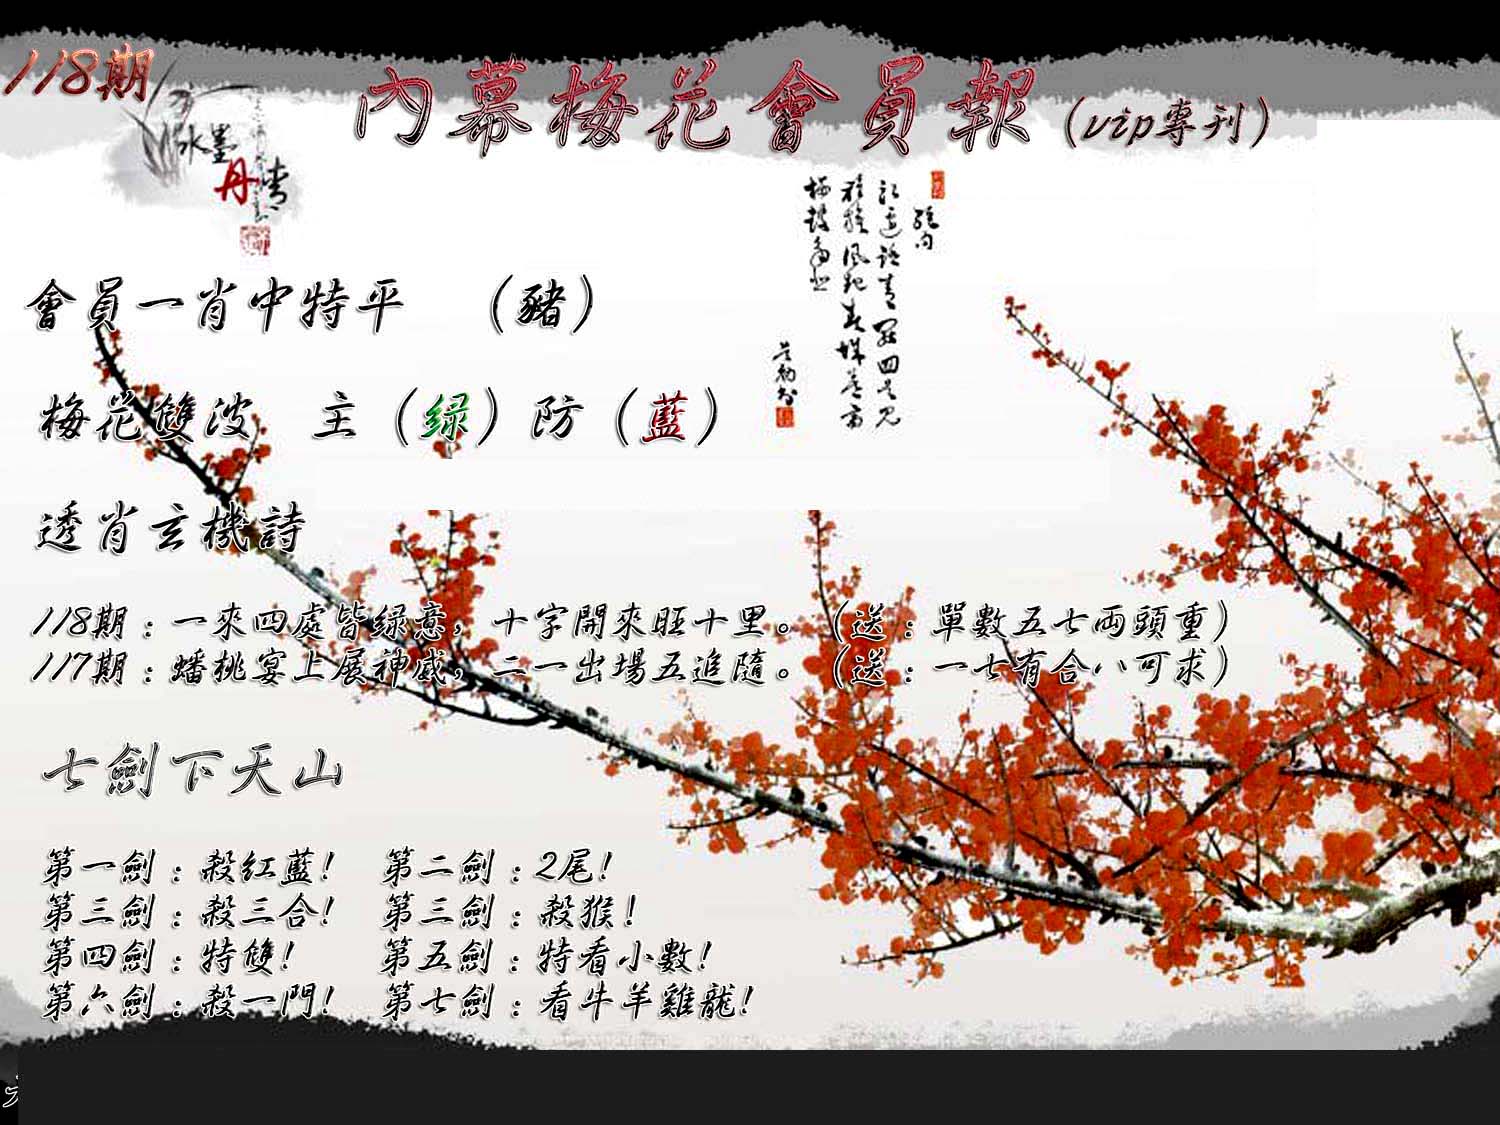 118期
內幕梅花會員報(vip專刊)
水墨
丹青
會員一肖中特平 （豬）
梅花雙波 主（绿）防（藍）
透肖玄機詩
118期：一來四處皆绿意，十字開來旺十里。（送：單數五七兩頭重）
117期：蟠桃宴上展神威，二一出場五追隨。（送：一七有合八可求）
七劍下天山
第一劍：殺紅藍! 第二劍：2尾!
第三劍：殺三合! 第三劍：殺猴!
第四劍：特雙! 第五劍：特看小數!
第六劍：殺一門! 第七劍：看牛羊雞龍!